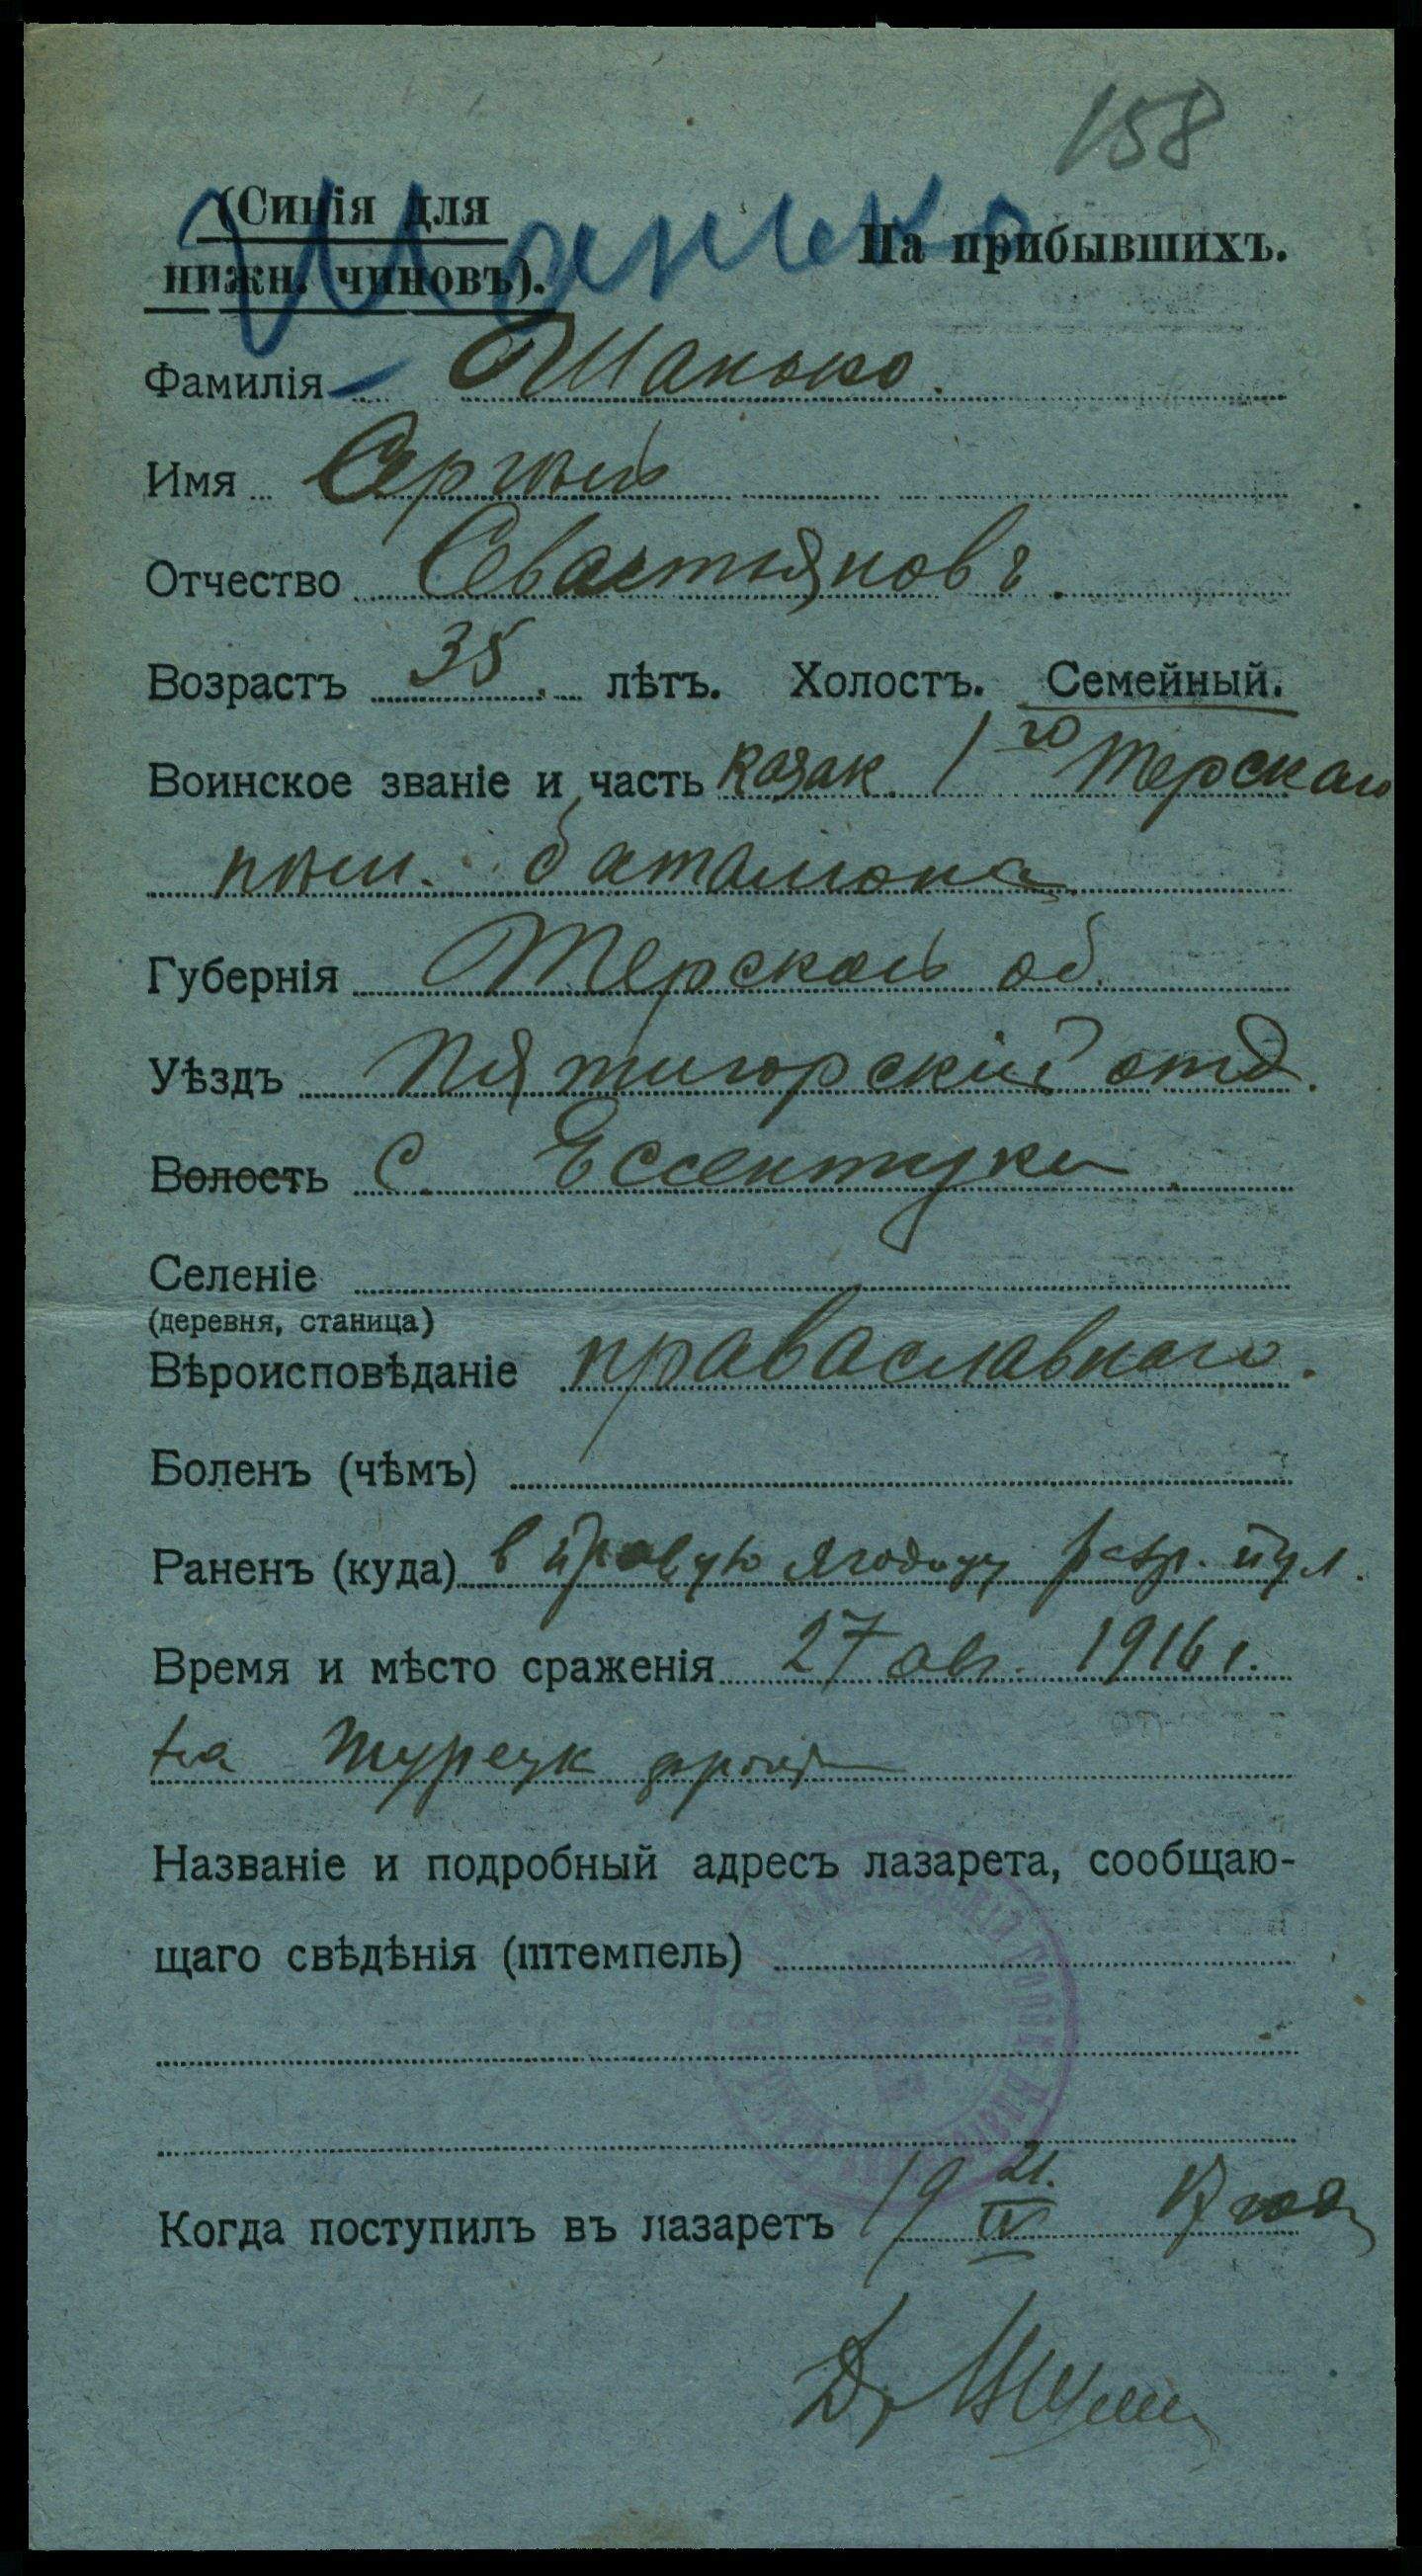 158
(Синія для
нижн. чиновъ).
На прибывшихъ.
Шанько
Фамилія Шанько.
Имя Сергѣй
Отчество Севастьяновъ.
Возрастъ 35. лѣтъ. Холостъ. Семейный.
Воинское званіе и часть козак 1го Терскаго
пѣш. баталіона
Губернія Терской об.
Уѣздъ Пятигорскій отд.
Волость С. Ессентуки.
Селеніе
(деревня, станица)
Вѣроисповѣданіе православнаго.
Боленъ (чѣмъ)
Раненъ (куда) в правую ягодицу пул.
Время и мѣсто сраженія 27 авг. 1916 г.
на Турецк фронт
Названіе и подробный адресъ лазарета, сообщаю-
щаго свѣдѣнія (штемпель)
Когда поступилъ въ лазаретъ 19 21. IV